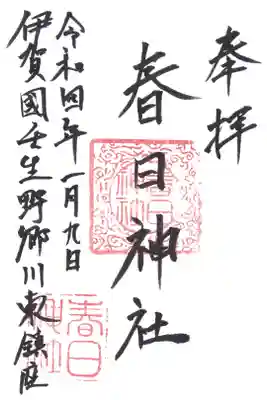 奉拝
春日神社
令和四年一月九日
伊賀國壬生野郷川東鎮座
春日